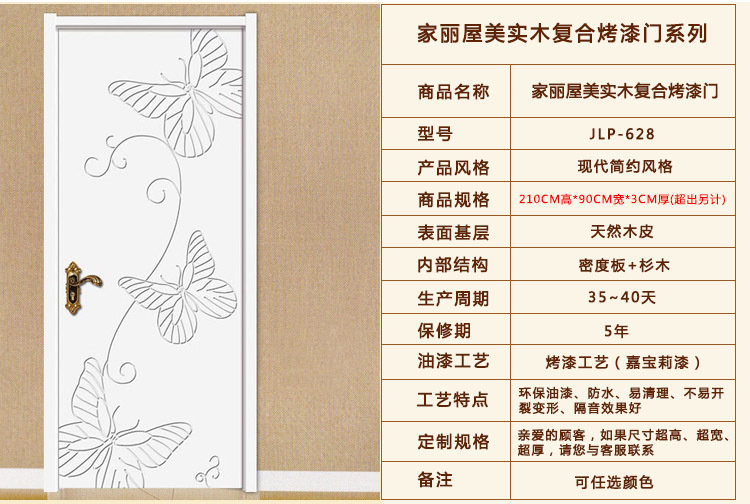 家丽屋美实木复合烤漆门系列
商品名称 家丽屋美实木复合烤漆门
型号 JLP-628
产品风格 现代简约风格
商品规格 210CM高*90CM宽*3CM厚(超出另计)
表面基层 天然木皮
内部结构 密度板+杉木
生产周期 35~40天
保修期 5年
油漆工艺 烤漆工艺（嘉宝莉漆）
工艺特点 环保油漆、防水、易清理、不易开
裂变形、隔音效果好
定制规格 亲爱的顾客，如果尺寸超高、超宽、
超厚，请您与客服联系
备注 可任选颜色